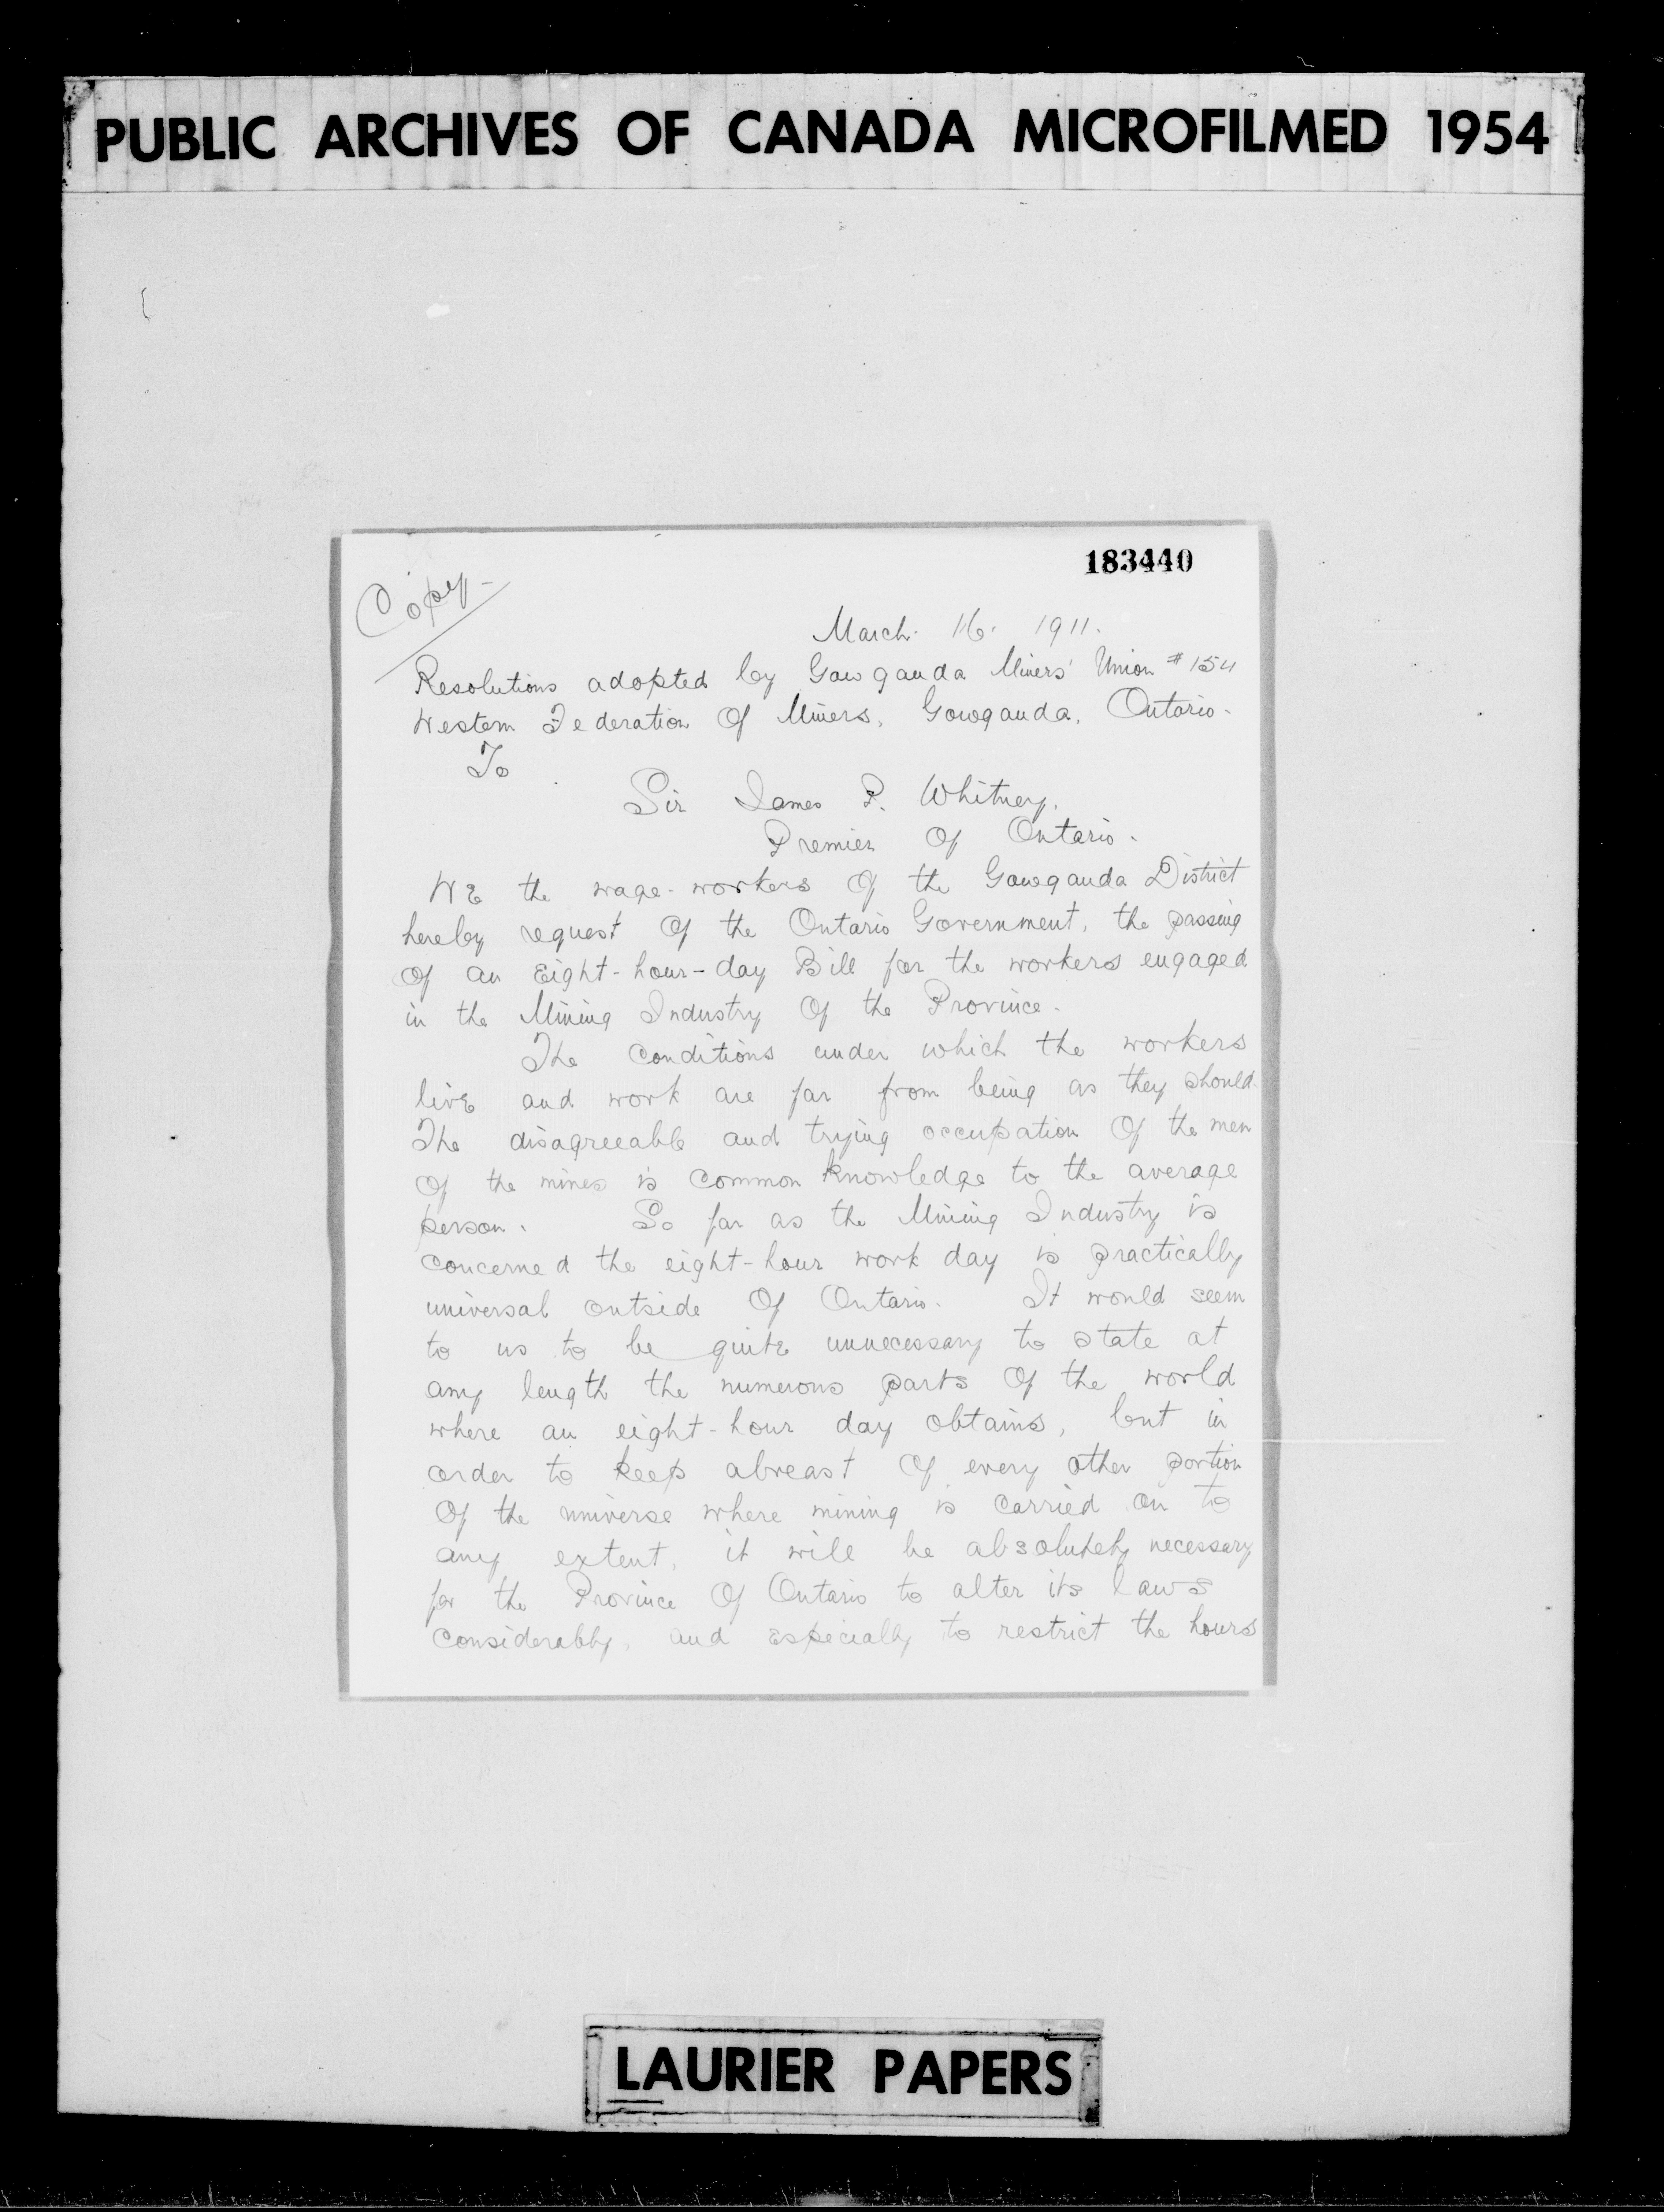 PUBLIC ARCHIVES OF CANADA MICROFILMED 1954
183440
Copy-
March. 16. 1911.
Resolutions adopted by Gowganda Miners' Union # 154
Western Federation Of Miners, Gowganda, Ontario.
To
Sir James P. Whitney.
Premier Of Ontario.
WE the wage-workers Of the Gowganda District
hereby request Of the Ontario Government, the passing
Of an Eight-hour-day Bill for the workers engaged
in the Mining Industry Of the Province.
The Conditions under which the workers
live and work are far from being as they should.
The disagreeable and trying occupation Of the men
Of the mines is Common knowledge to the average
person. So far as the Mining Industry is
Concerned the eight-hour work day is practically
universal outside Of Ontario. It would seem
to us to be quite unnecessary to state at
any length the numerous parts Of the world
where an eight-hour day obtains, but in
order to keep abreast Of every other portion
Of the universe where mining is Carried on to
any extent, it will be absolutely necessary
for the Province Of Ontario to alter its laws
Considerably, and Especially to restrict the hours
LAURIER PAPERS